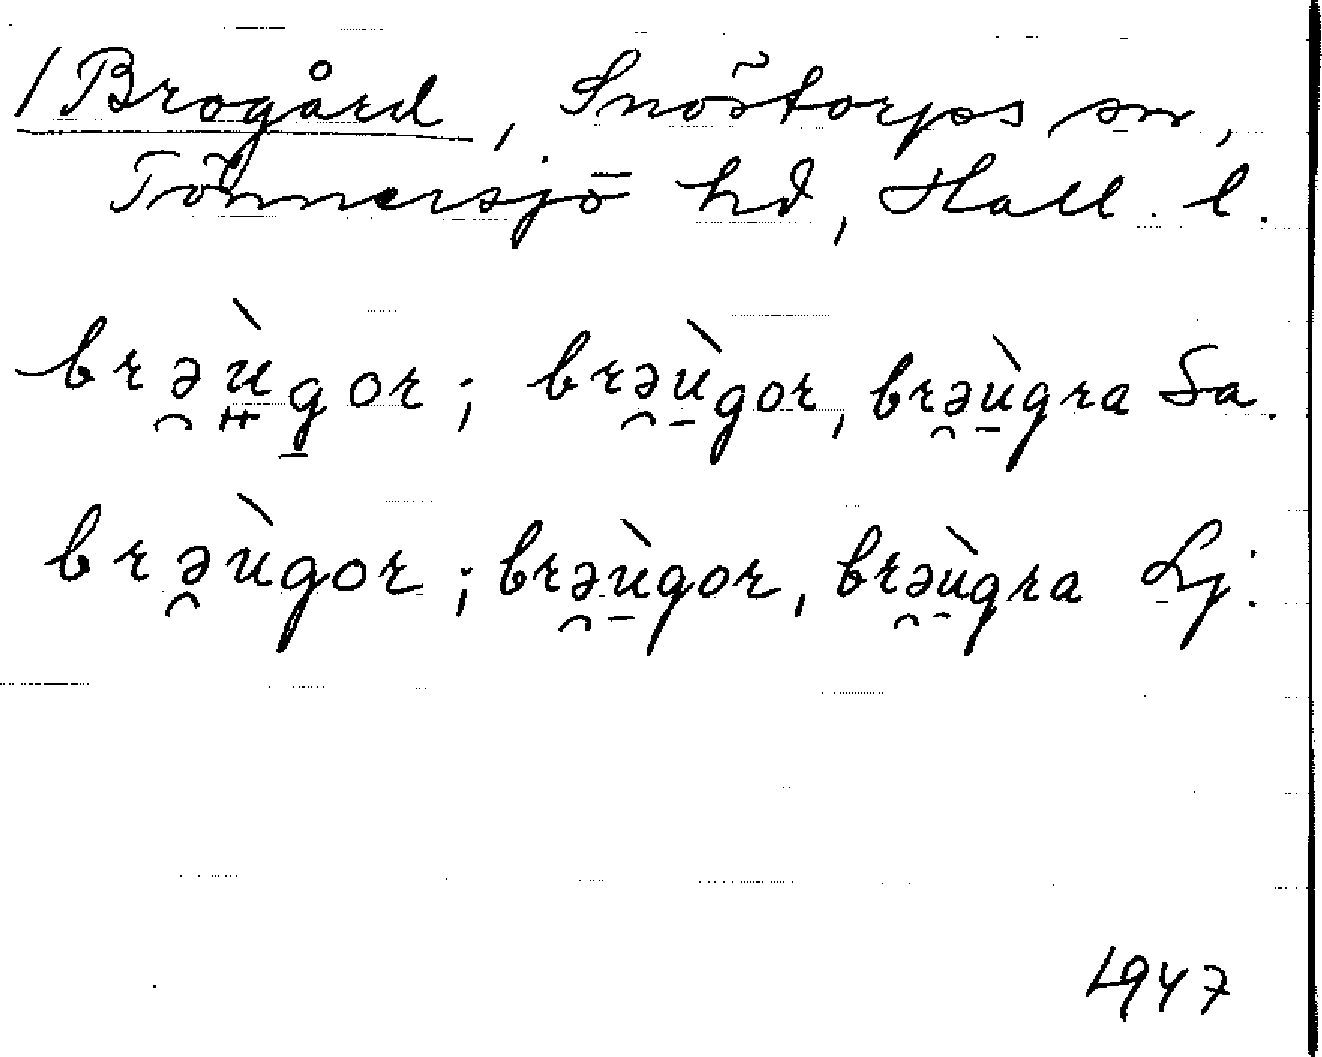 /Brogård, Snöstorps sn,
Tönnersjö hd, Hall. l.
brə̯ùgor; brə̯ùgor, brə̯ùgra Sa.
brə̯ùgor; brə̯ùgor, brə̯ùgra Lj:
1947